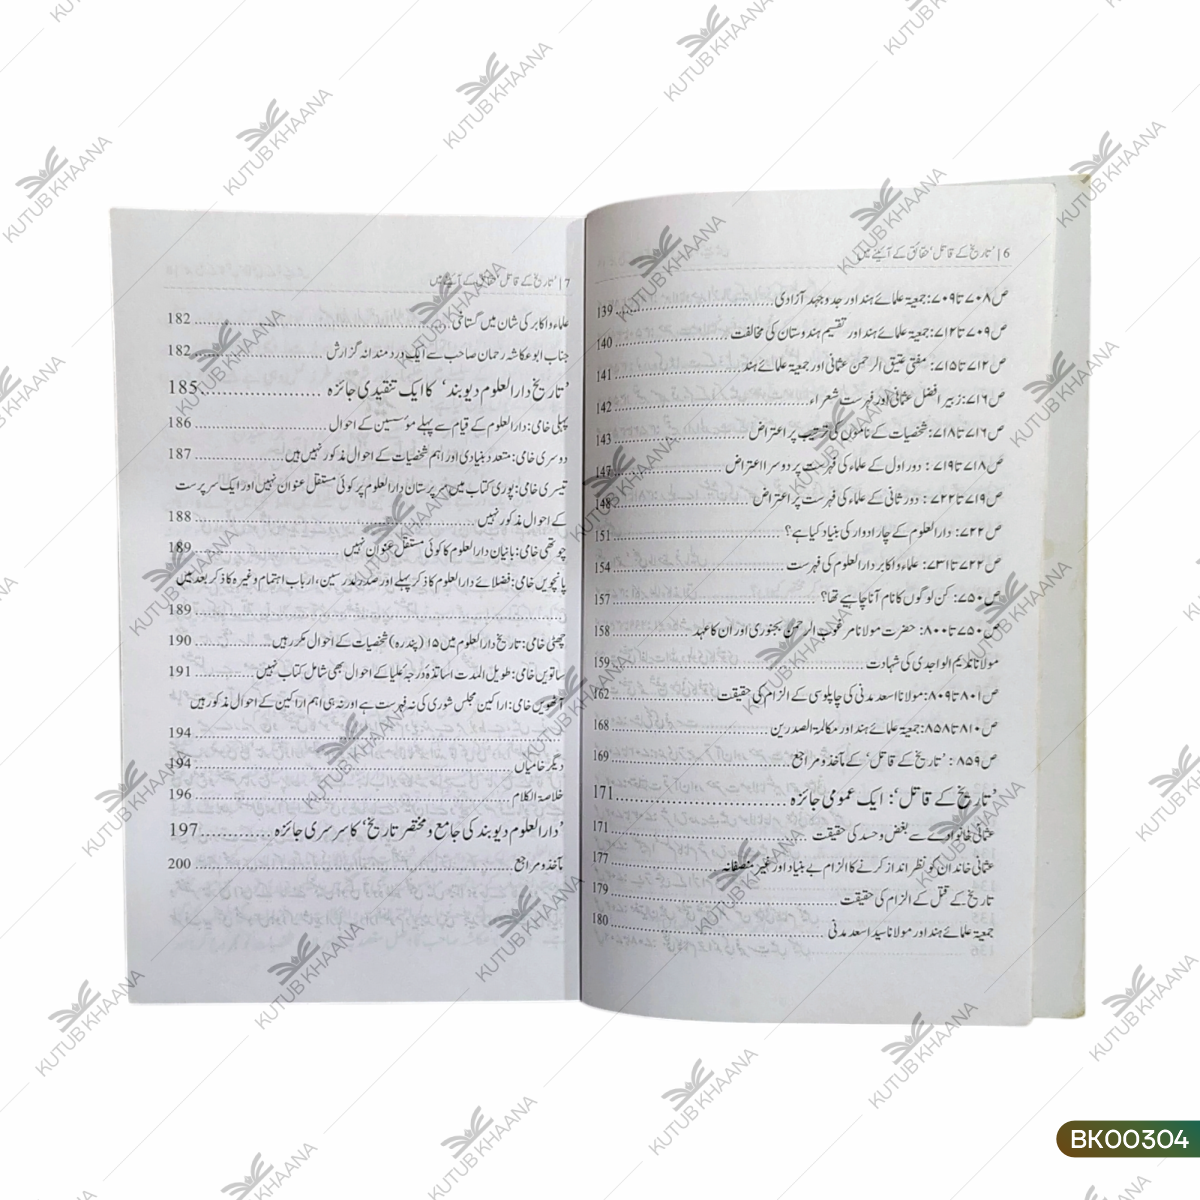 6 | 'تاریخ کے قاتل' حقائق کے آئینے میں
ص۷۰۸ تا ۷۰۹: جمعیۃ علمائے ہند اور جدوجہد آزادی 139
ص۷۰۹ تا ۷۱۲: جمعیۃ علمائے ہند اور تقسیم ہندوستان کی مخالفت 140
ص۷۱۲ تا ۷۱۵: مفتی عتیق الرحمن عثمانی اور جمعیۃ علمائے ہند 141
ص۷۱۶: زبیر افضل عثمانی اور فہرست شعراء 142
ص۷۱۶ تا ۷۱۸: شخصیات کے ناموں کی ترتیب پر اعتراض 143
ص۷۱۸ تا ۷۱۹: دور اول کے علماء کی فہرست پر دوسرا اعتراض 147
ص۷۱۹ تا ۷۲۲: دور ثانی کے علماء کی فہرست پر اعتراض 148
ص۷۲۲: دارالعلوم کے چار ادوار کی بنیاد کیا ہے؟ 151
ص۷۲۲ تا ۷۳۱: علماء و اکابر دارالعلوم کی فہرست 154
ص۷۵۰: کن لوگوں کا نام آنا چاہیے تھا؟ 157
ص۷۵۰ تا ۸۰۰: حضرت مولانا مرغوب الرحمن بجنوری اور ان کا عہد 158
مولانا ندیم الواجدی کی شہادت 159
ص۸۰۱ تا ۸۰۹: مولانا اسعد مدنی کی چاپلوسی کے الزام کی حقیقت 162
ص۸۱۰ تا ۸۵۸: جمعیۃ علمائے ہند اور مکالمۃ الصدرین 168
ص۸۵۹: 'تاریخ کے قاتل' کے مآخذ و مراجع 169
'تاریخ کے قاتل': ایک عمومی جائزہ 171
عثمانی خانوادے سے بغض و حسد کی حقیقت 171
عثمانی خاندان کو نظر انداز کرنے کا الزام بے بنیاد اور غیر منصفانہ 177
تاریخ کے قتل کے الزام کی حقیقت 179
جمعیۃ علمائے ہند اور مولانا سید اسعد مدنی 180
7 | 'تاریخ کے قاتل' حقائق کے آئینے میں
علماء و اکابر کی شان میں گستاخی 182
جناب ابو عکاشہ رحمان صاحب سے ایک دردمندانہ گزارش 182
'تاریخ دارالعلوم دیوبند' کا ایک تنقیدی جائزہ 185
پہلی خامی: دارالعلوم کے قیام سے پہلے مؤسسین کے احوال 186
دوسری خامی: متعدد بنیادی اور اہم شخصیات کے احوال مذکور نہیں ہیں 187
تیسری خامی: پوری کتاب میں سرپرستان دارالعلوم پر کوئی مستقل عنوان نہیں اور ایک سرپرست
کے احوال مذکور نہیں 188
چوتھی خامی: بانیان دارالعلوم کا کوئی مستقل عنوان نہیں 189
پانچویں خامی: فضلائے دارالعلوم کا ذکر پہلے اور صدر مدرسین، ارباب اہتمام وغیرہ کا ذکر بعد میں
189
چھٹی خامی: تاریخ دارالعلوم میں ۱۵ (پندرہ) شخصیات کے احوال مکرر ہیں 190
ساتویں خامی: طویل المدت اساتذۂ درجۂ علیا کے احوال بھی شامل کتاب نہیں 191
آٹھویں خامی: اراکین مجلس شوری کی نہ فہرست ہے اور نہ ہی اہم اراکین کے احوال مذکور ہیں
194
دیگر خامیاں 194
خلاصۃ الکلام 196
'دارالعلوم دیوبند کی جامع و مختصر تاریخ' کا سرسری جائزہ 197
مآخذ و مراجع 200
KUTUB KHAANA
BK00304